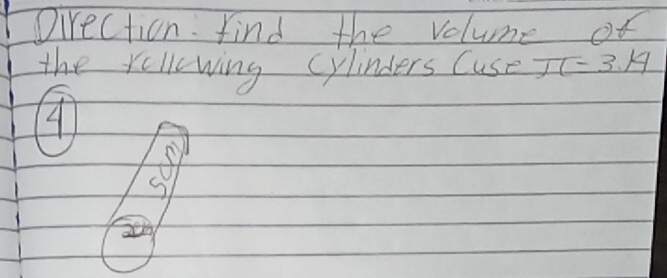 Direction: find the volume of
the following cylinders (use π=3.14
4
5cm